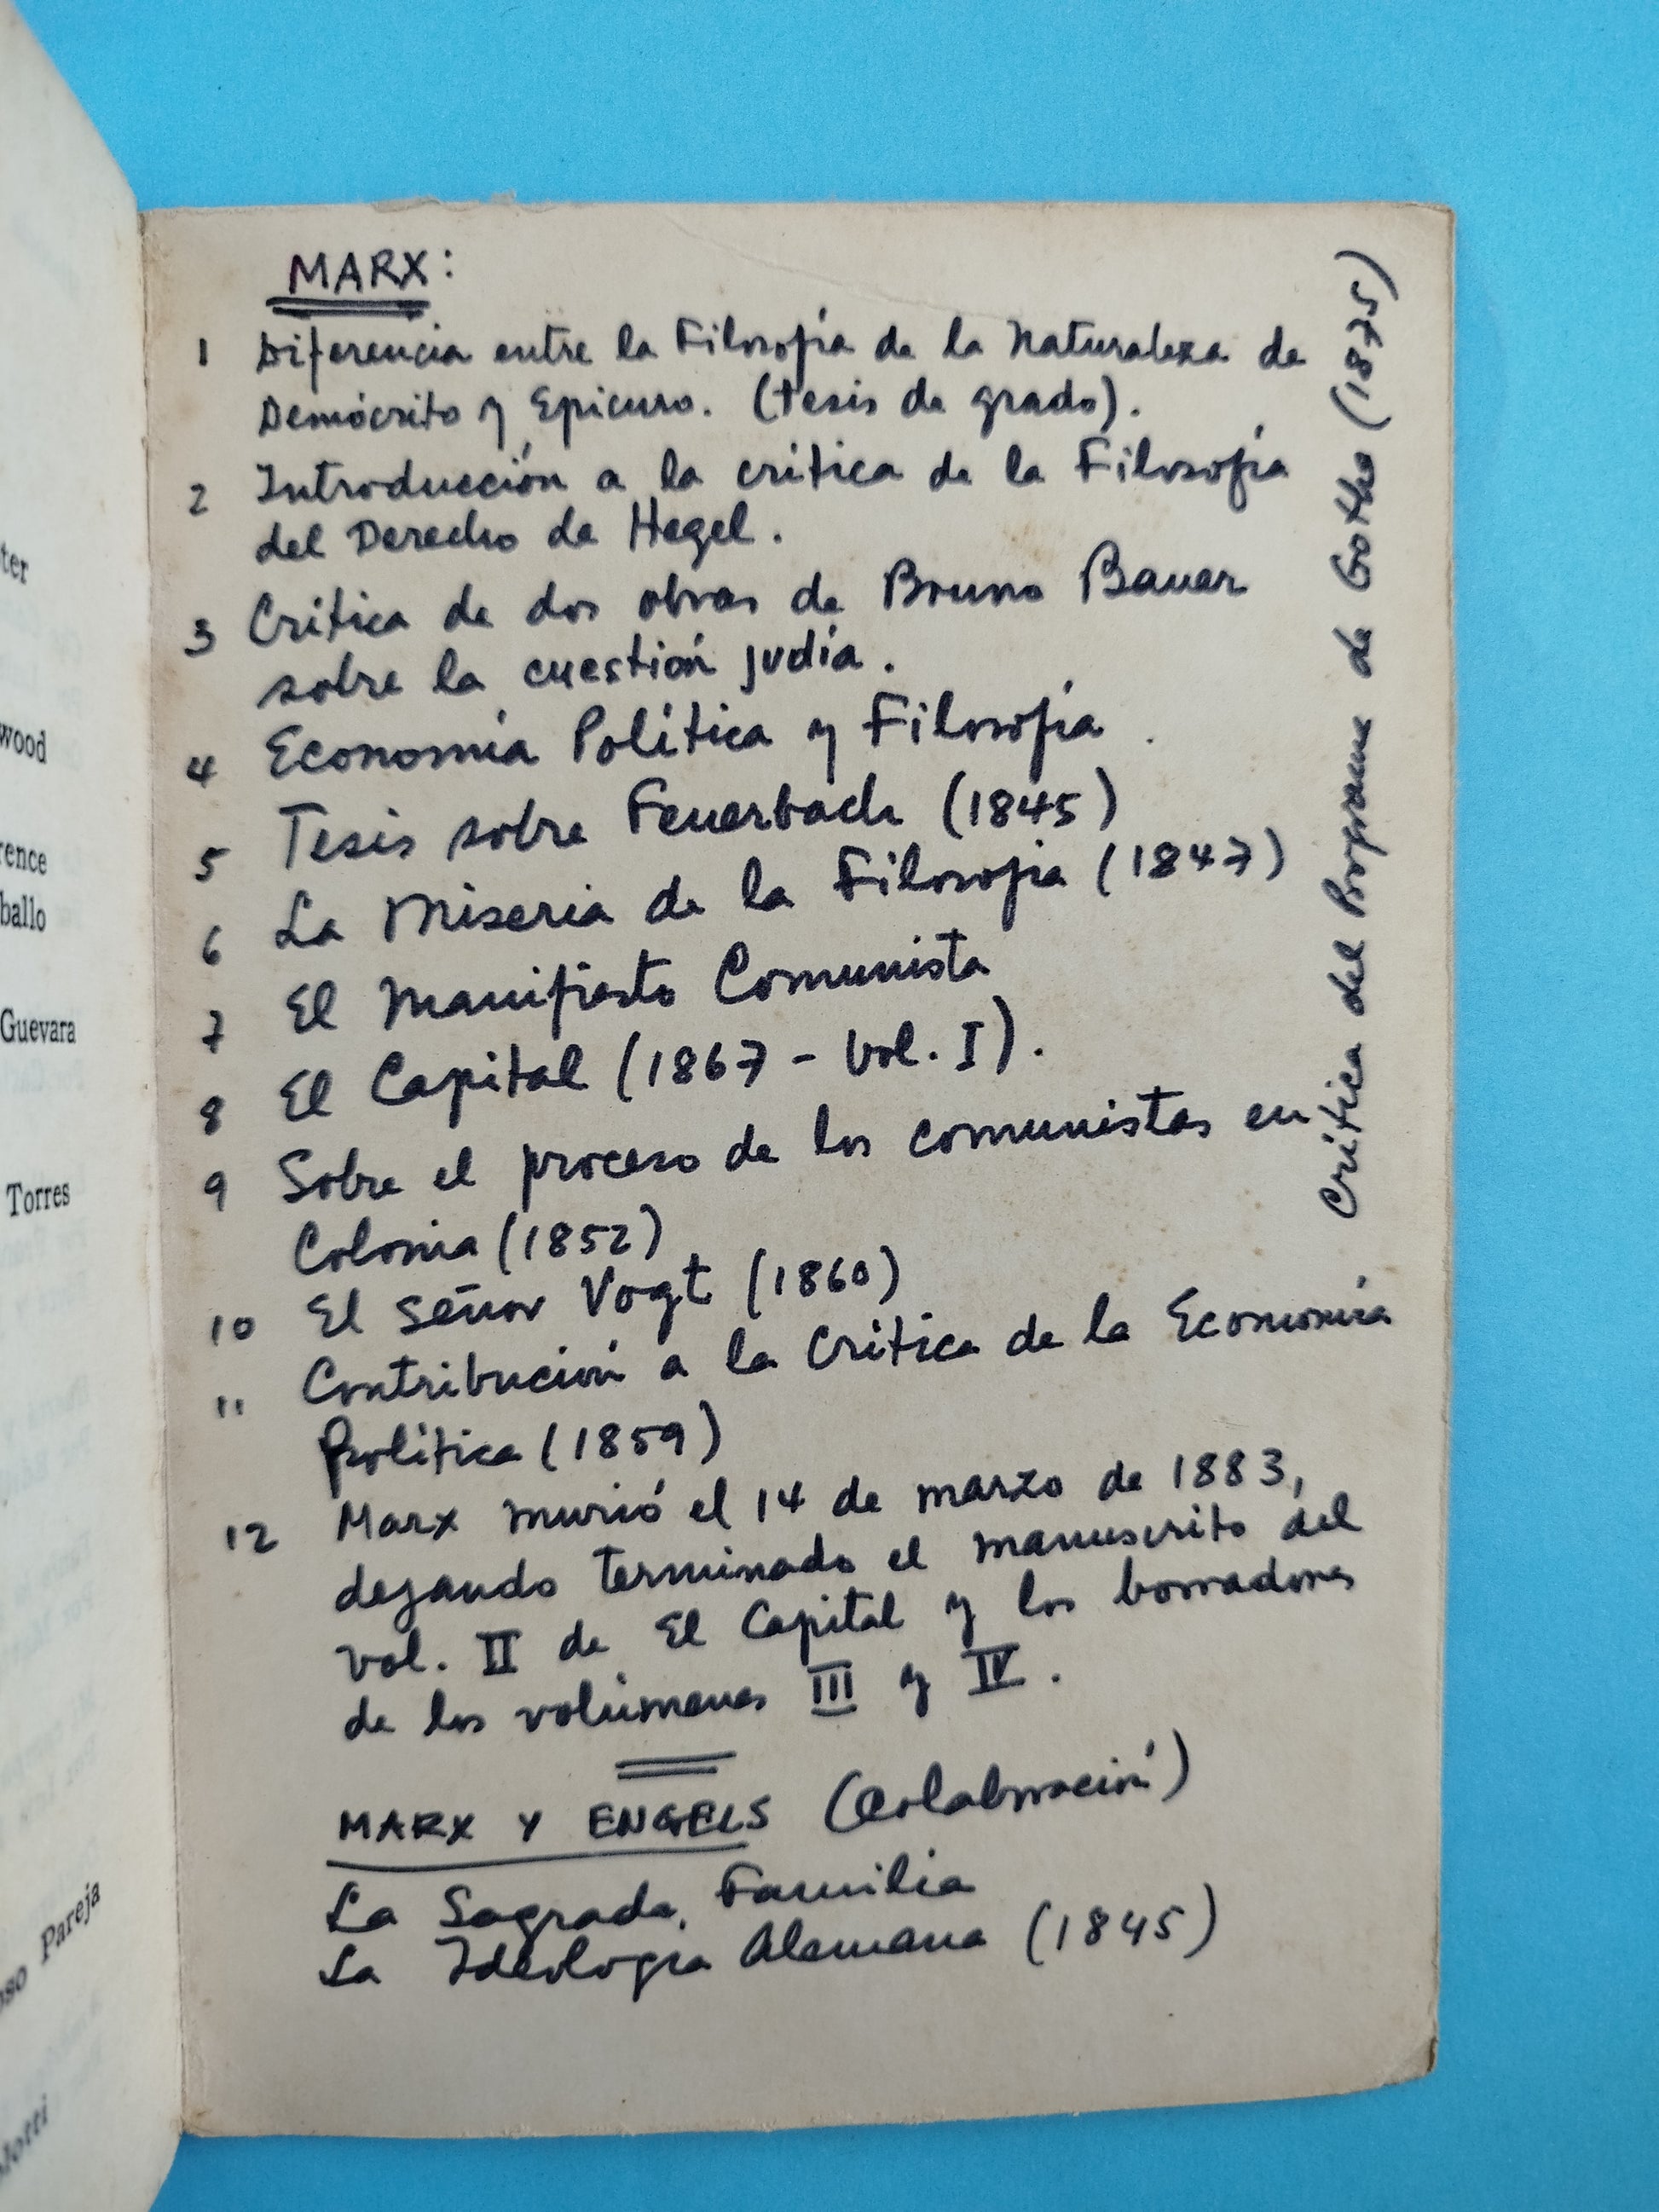 ter
wood
rence
ballo
Guevara
Torres
oso Pareja
MARX:
1 Diferencia entre la Filosofía de la Naturaleza de
Demócrito y Epicuro. (tesis de grado).
2 Introducción a la crítica de la Filosofía
del Derecho de Hegel.
3 Crítica de dos obras de Bruno Bauer
sobre la cuestión judía.
4 Economía Política y Filosofía.
5 Tesis sobre Feuerbach (1845)
6 La Miseria de la Filosofía (1847)
7 El Manifiesto Comunista
8 El Capital (1867 - Vol. I).
9 Sobre el proceso de los comunistas en
Colonia (1852)
10 El señor Vogt (1860)
11 Contribución a la Crítica de la Economía
Política (1859)
12 Marx murió el 14 de marzo de 1883,
dejando terminado el manuscrito del
vol. II de El Capital y los borradores
de los volúmenes III y IV.
MARX Y ENGELS (Colaboración)
La Sagrada Familia
La Ideología Alemana (1845)
Crítica del Programa de Gotha (1875)